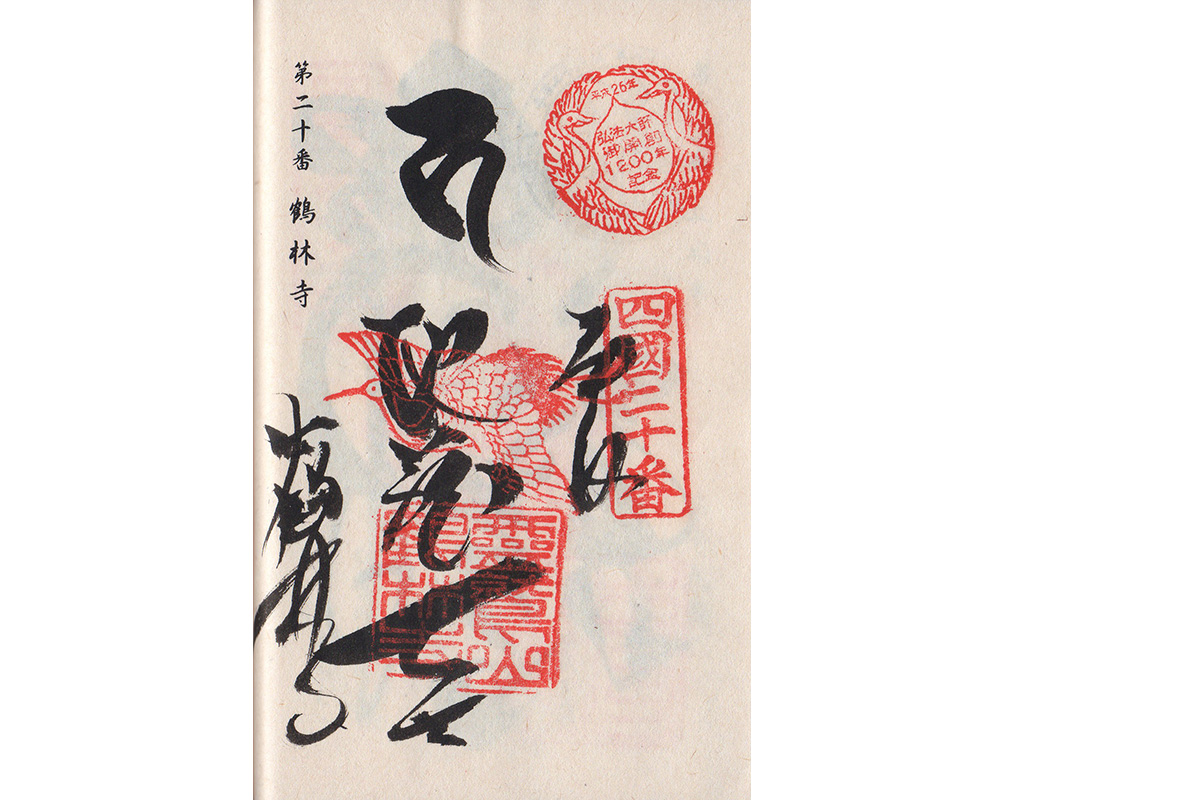 平成26年
弘法大師
御開創
1200年
記念
四國二十番
奉納
靈鷲山
鶴林寺
鶴林寺
第二十番 鶴林寺